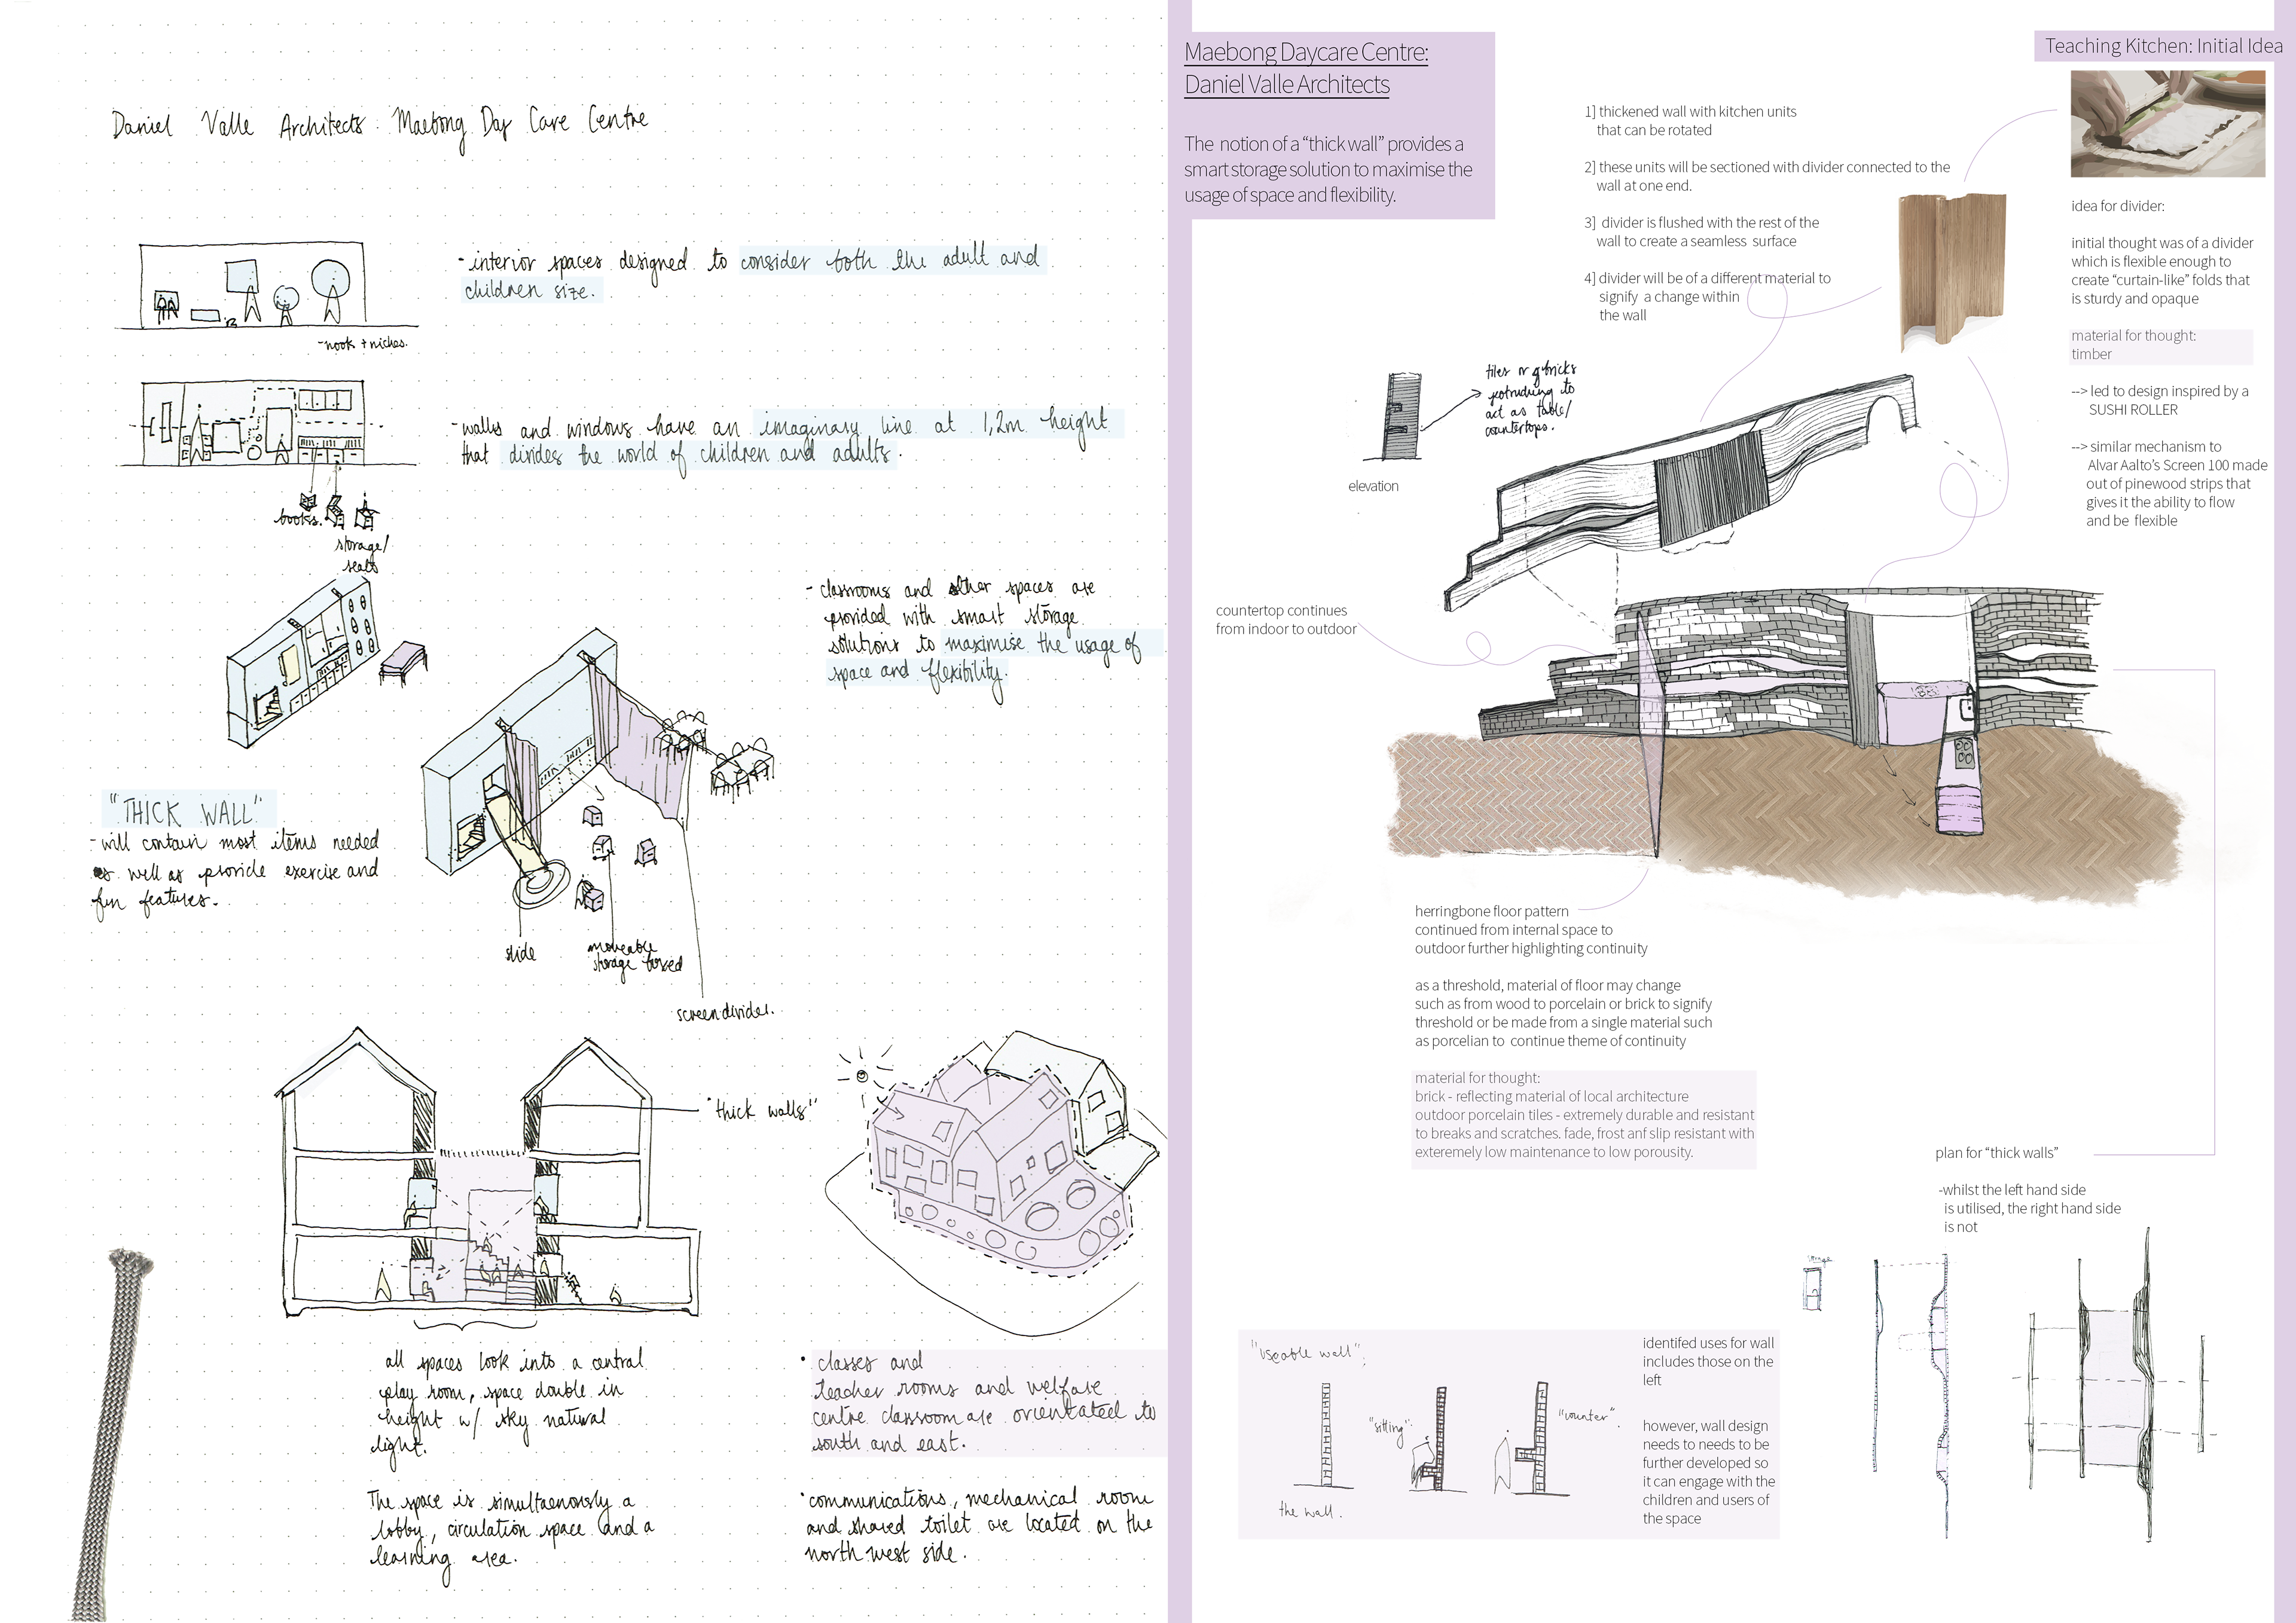 Daniel Valle Architects: Maebong Day Care Centre
- interior spaces designed to consider both the adult and
children size.
- nook + niches.
- walls and windows have an imaginary line at 1,2m height
that divides the world of children and adults.
books.
storage/
seats
- classrooms and other spaces are
provided with smart storage
solutions to maximise the usage of
space and flexibility.
"THICK WALL"
- will contain most items needed
as well as provide exercise and
fun features.
slide
moveable
storage
screen divider.
"thick walls"
all spaces look into a central
play room, space double in
height w/ sky natural
light.
The space is simultaenously a
lobby, circulation space and a
learning area.
• classes and
teacher rooms and welfare
centre classroom are orientated to
south and east.
• communications, mechanical room
and shared toilet are located on the
north west side.
Maebong Daycare Centre:
Daniel Valle Architects
The notion of a “thick wall” provides a
smart storage solution to maximise the
usage of space and flexibility.
1] thickened wall with kitchen units
that can be rotated
2] these units will be sectioned with divider connected to the
wall at one end.
3] divider is flushed with the rest of the
wall to create a seamless surface
4] divider will be of a different material to
signify a change within
the wall
Teaching Kitchen: Initial Idea
idea for divider:
initial thought was of a divider
which is flexible enough to
create “curtain-like” folds that
is sturdy and opaque
material for thought:
timber
--> led to design inspired by a
SUSHI ROLLER
--> similar mechanism to
Alvar Aalto’s Screen 100 made
out of pinewood strips that
gives it the ability to flow
and be flexible
tiles or bricks
protruding to
act as table/
countertops.
elevation
countertop continues
from indoor to outdoor
herringbone floor pattern
continued from internal space to
outdoor further highlighting continuity
as a threshold, material of floor may change
such as from wood to porcelain or brick to signify
threshold or be made from a single material such
as porcelian to continue theme of continuity
material for thought:
brick - reflecting material of local architecture
outdoor porcelain tiles - extremely durable and resistant
to breaks and scratches. fade, frost anf slip resistant with
exteremely low maintenance to low porousity.
plan for “thick walls”
-whilst the left hand side
is utilised, the right hand side
is not
storage
"Useable wall";
"sitting".
"counter".
the wall.
identifed uses for wall
includes those on the
left
however, wall design
needs to needs to be
further developed so
it can engage with the
children and users of
the space